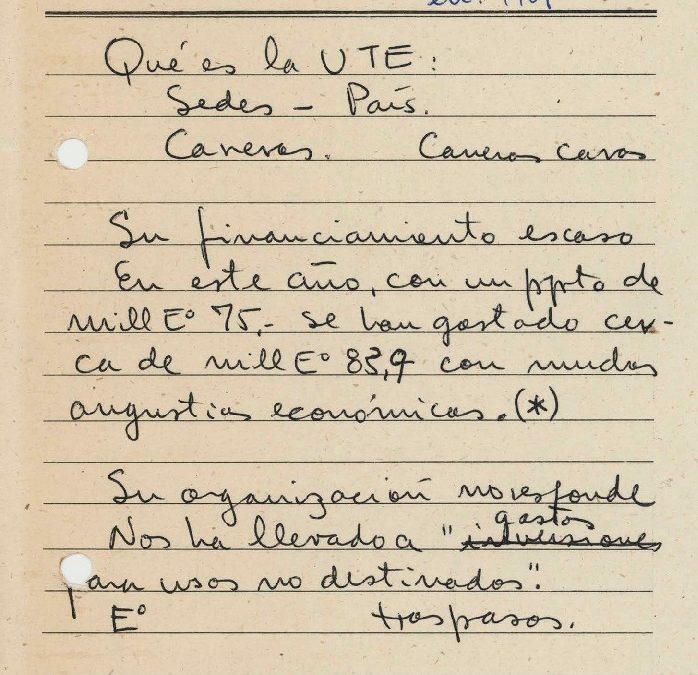 Qué es la UTE:
Sedes – País.
Carreras. Carreras caras
Su financiamiento escaso
En este año, con un ppto de
mill Eº 75,- se han gastado cer-
ca de mill Eº 83,9 con muchas
angustias económicas. (*)
Su organización no responde
gastos
Nos ha llevado a " inversiones
para usos no destinados".
Eº traspasos.